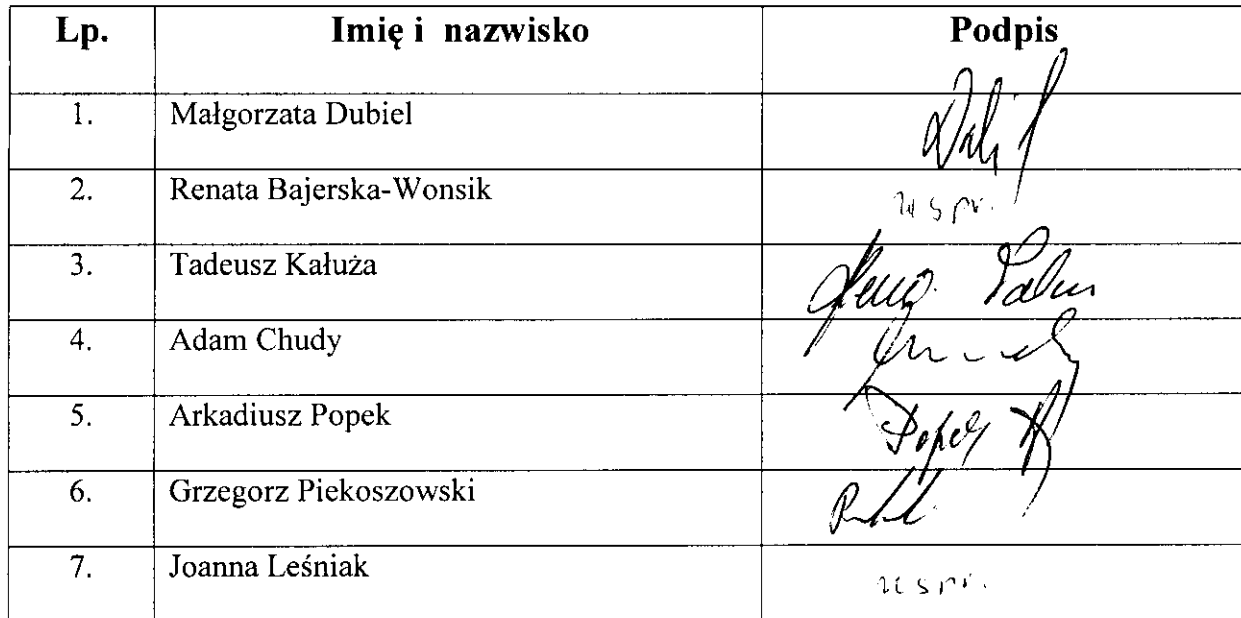 Lp. Imię i nazwisko Podpis
1. Małgorzata Dubiel
2. Renata Bajerska-Wonsik
3. Tadeusz Kałuża
4. Adam Chudy
5. Arkadiusz Popek Popek
6. Grzegorz Piekoszowski
7. Joanna Leśniak